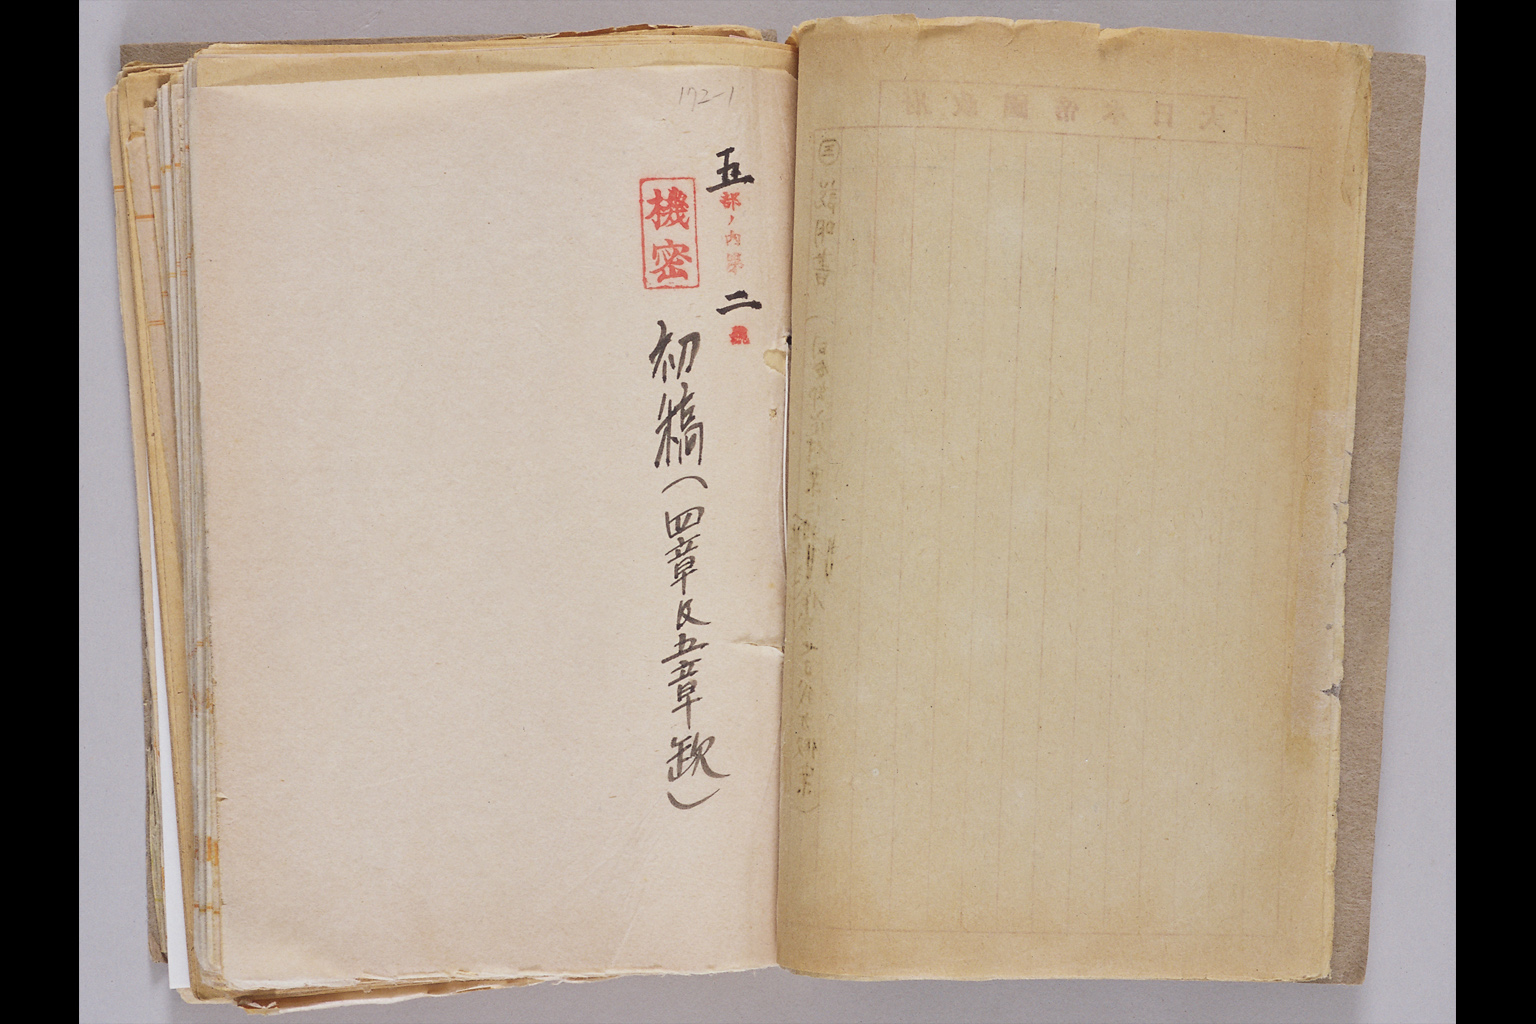 大日本帝國政府
㊂ 説明書
172-1
五部ノ内第二號
機密
初稿(四章及五章欠)